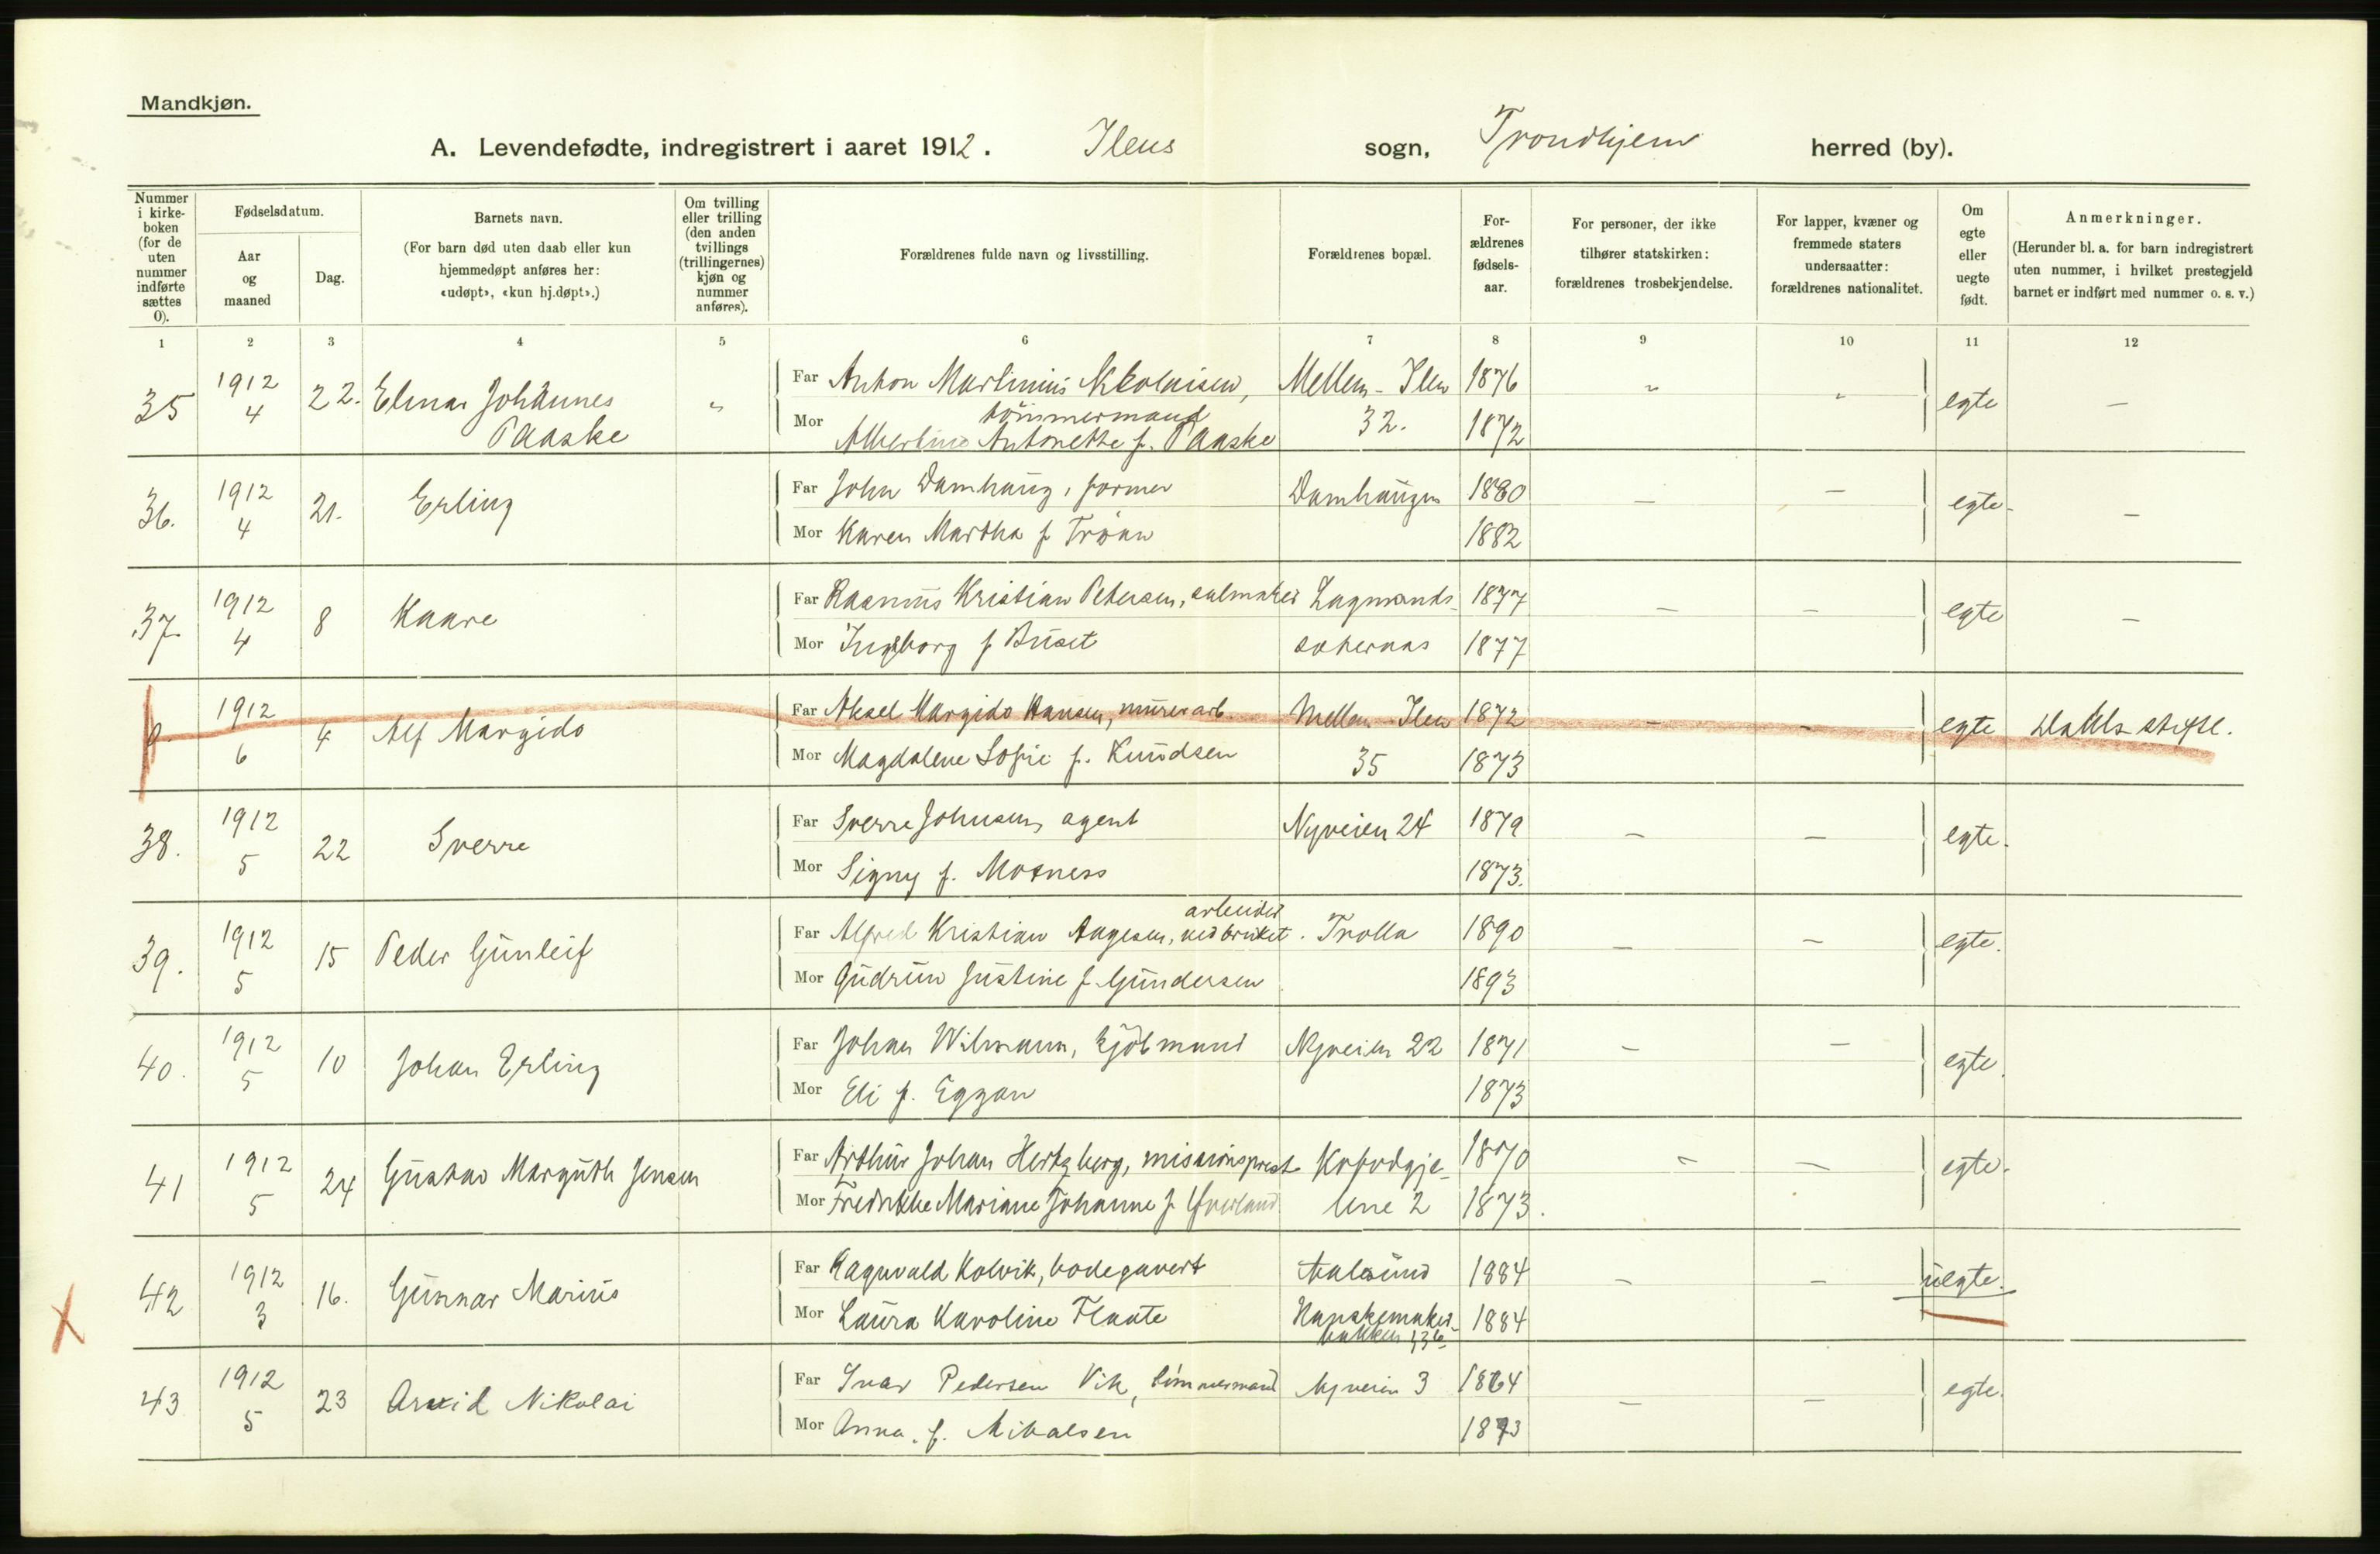 Mandkjøn.
A. Levendefødte, indregistrert i aaret 1912. Ilens sogn, Trondhjem herred (by).
Nummer i kirke-boken (for de uten nummer indførte sættes 0).
Fødselsdatum.
Aar og maaned
Dag.
Barnets navn.
(For barn død uten daab eller kun hjemmedøpt anføres her: «udøpt», «kun hj.døpt».)
Om tvilling eller trilling (den anden tvillings (trillingernes) kjøn og nummer anføres).
Forældrenes fulde navn og livsstilling.
Forældrenes bopæl.
For-ældrenes fødsels-aar.
For personer, der ikke tilhører statskirken: forældrenes trosbekjendelse.
For lapper, kvæner og fremmede staters undersaatter: forældrenes nationalitet.
Om egte eller uegte født.
Anmerkninger.
(Herunder bl. a. for barn indregistrert uten nummer, i hvilket prestegjeld barnet er indført med nummer o. s. v.)
1 2 3 4 5 6 7 8 9 10 11 12
35 1912 4 22. Elmar Johannes Paaske " Far Anton Martinius Nikolaisen, tömmermand Mellem-Ilen 1876 " " egte —
Mor Albertine Antonette f. Paaske 32. 1872
36. 1912 4 21. Erling Far John Damhaug, former Damhaugen 1880 — — egte. —
Mor Karen Martha f Tröan 1882
37. 1912 4 8 Kaare Far Rasmus Kristian Petersen, salmaker Lagmands- 1877 — — egte —
Mor Ingeborg f Buset 1877
0. 1912 6 4 Alf Margido Far Aksel Margido Hansen, murerarb. Mellem-Ilen 1872 — — egte Dahls stiftl.
Mor Magdalene Sofie f. Knudsen 35 1873
38. 1912 5 22 Sverre Far Sverre Johnsen, agent Nyveien 24 1879 — — egte.
Mor Signy f. Mosness 1873.
39. 1912 5 15 Peder Gunleif Far Alfred Kristian Aagesen, arbeider ved bruket. Trolla 1890 — — egte.
Mor Gudrun Justine f. Gundersen 1893
40. 1912 5 10 Johan Erling Far Johan Wilmann, kjöbmand Nyveien 22 1871 — — egte.
Mor Eli f. Eggan 1873
41 1912 5 24 Gustav Marguth Jensen Far Arthur Johan Hertzberg, missionsprest Kofodgje- 1870 — — egte.
Mor Fredrikke Mariane Johanne f. Överland lene 2 1873.
42 1912 3 16. Gunnar Marius Far Ragnvald Kolvik, bodegavert Aalesund 1884 — — uegte.
Mor Laura Karoline Flaate Hanskemaker- bakken 1884
43 1912 5 23 Arvid Nikolai Far Ivar Pedersen Vik, tömmermand Nyveien 3 1864 — — egte.
Mor Anna f. Mikalsen 1873